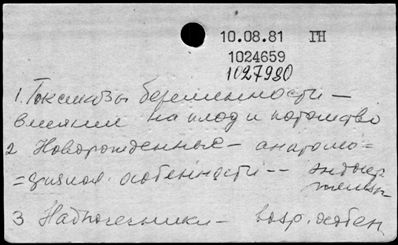 10.08.81 ГН
1024659
1027980
1. Токсикозы беременности –
влияние на плод и потомство
2 Новорожденные – анатомо-
=физиол. особенности --
3 Надпочечники – возр. особен.